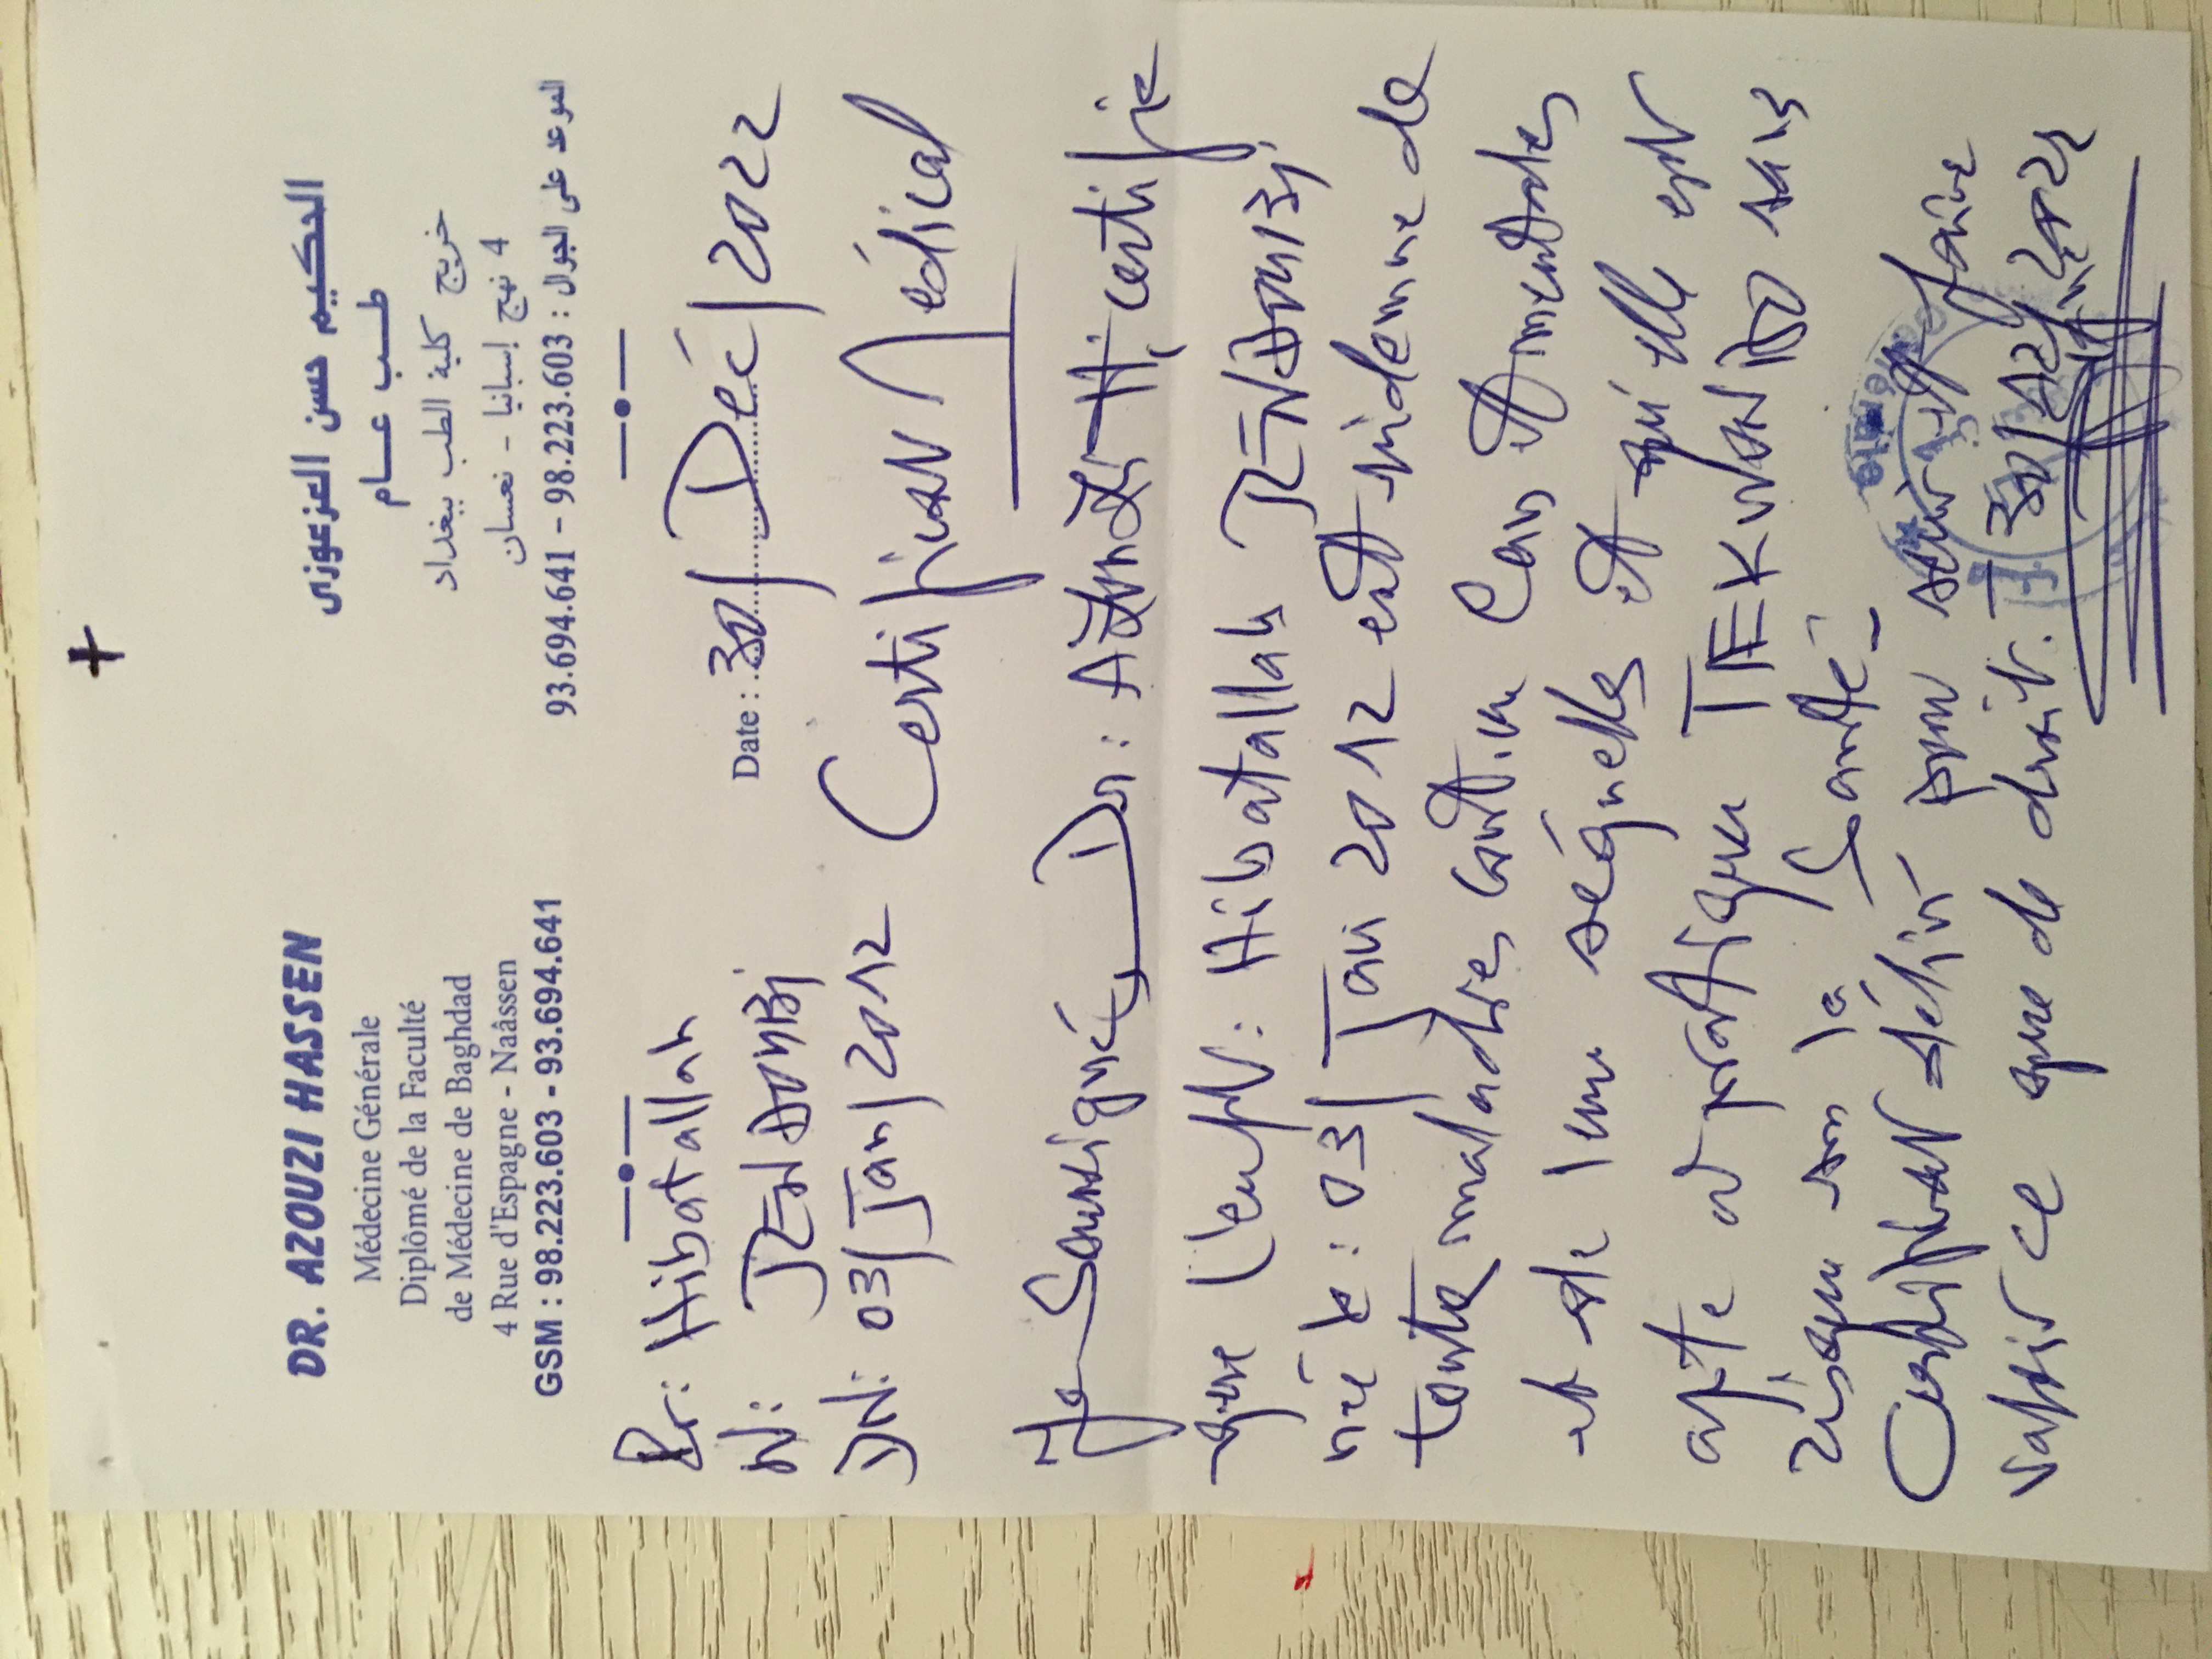 +
DR. AZOUZI HASSEN
Médecine Générale
Diplômé de la Faculté
de Médecine de Baghdad
4 Rue d'Espagne - Naâssen
GSM : 98.223.603 - 93.694.641
الحكيم حسن العزعوزي
طـــب عـــام
خريج كلية الطب ببغداد
4 نهج إسبانيا - نعسان
الموعد على الجوال : 98.223.603 - 93.694.641
Date : 30/Déc/2022
Pr: Hibatallah
N: JENDOUBI
DN: 03/Jan/2012
Certificat Médical
Je Soussigné, Dr: Azouzi H, certifie
que l'enft: Hibatallah JENDOUBI,
née le: 03/Jan 2012 est indemne de
toute maladies
et de leur séquelles et qu'elle est
apte à pratiquer TEKWANDO sans
risque sur la Santé-
Certificat délivré pour servir et faire
valoir ce que de droit.
30/12/2022